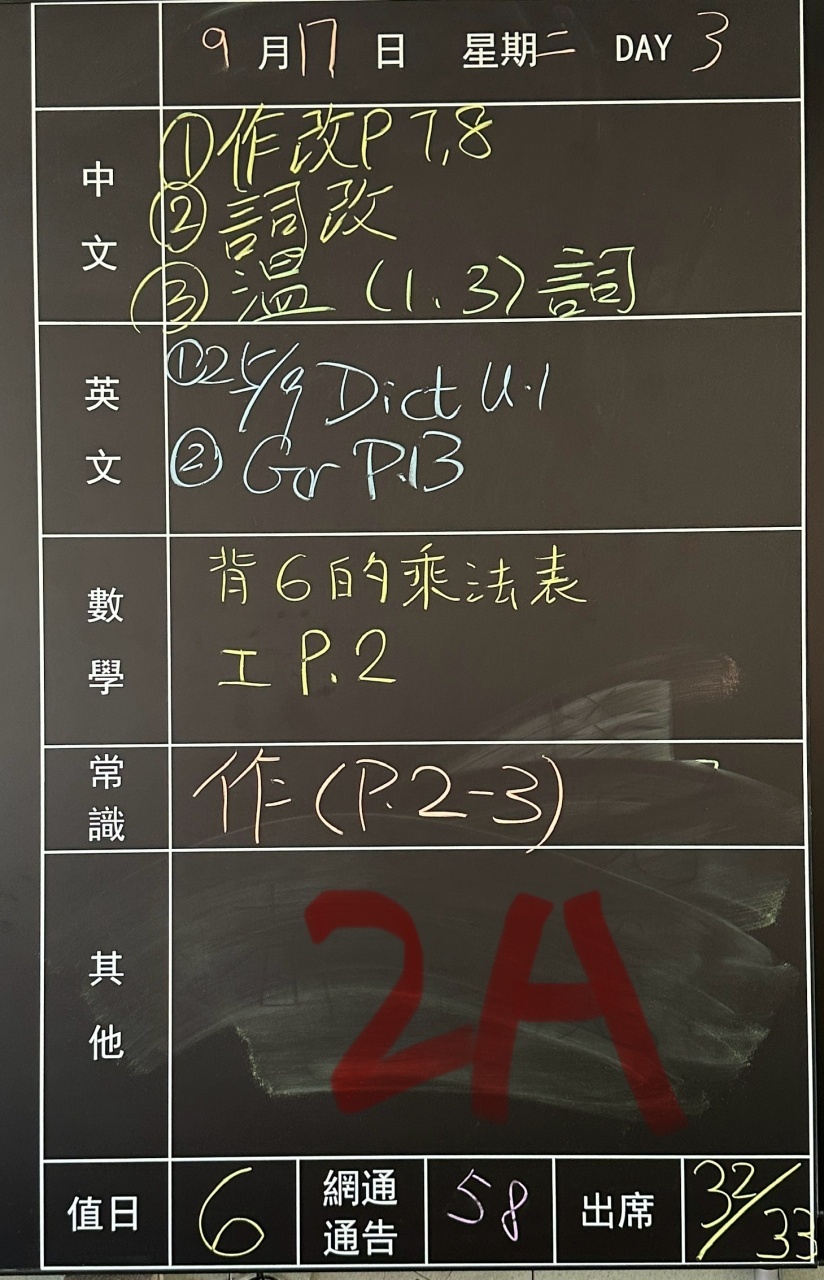 9月17日 星期二 DAY 3
中文
①作改P7,8
②詞改
③溫(1、3)詞
英文
①25/9 Dict U.1
②Gr P.13
數學
背6的乘法表
工P.2
常識
作(P.2-3)
其他
2A
值日 6 網通通告 58 出席 32/33